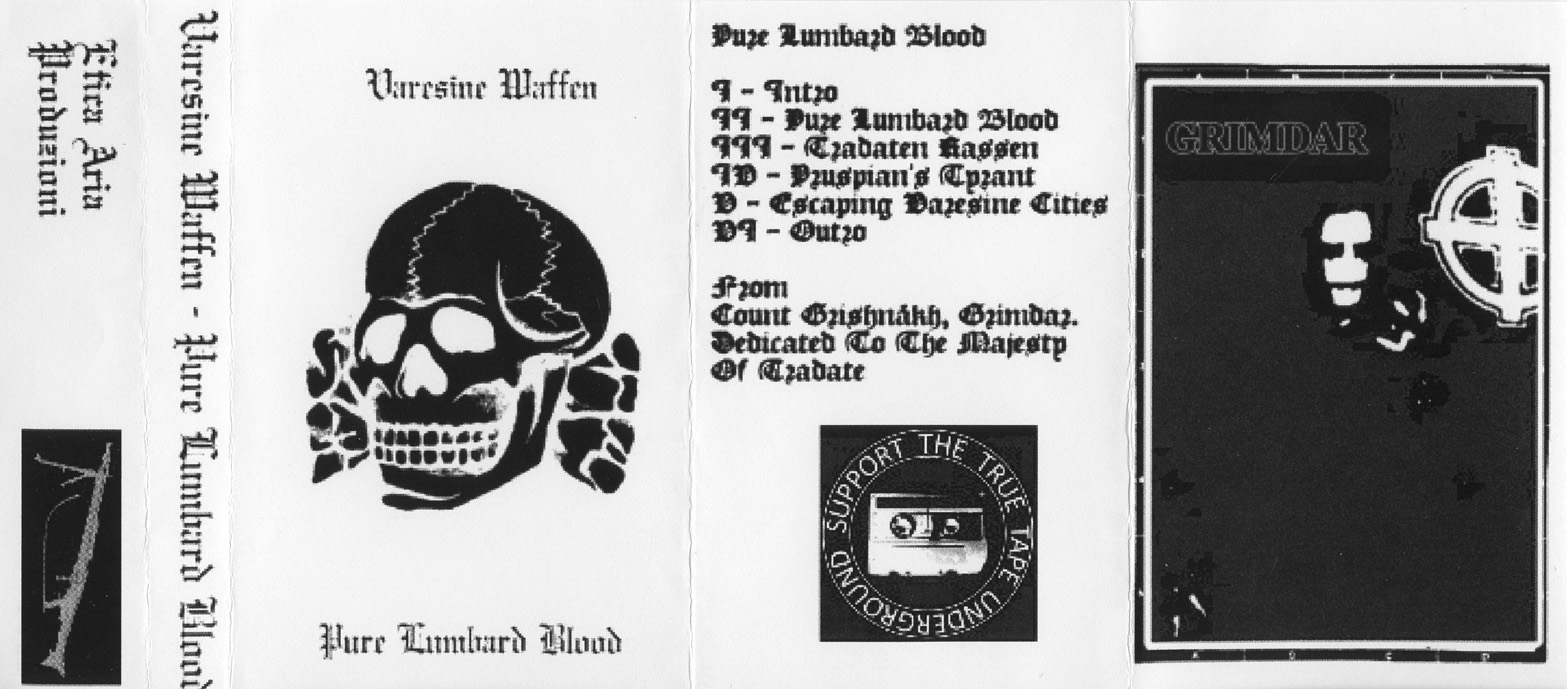 Etica Aria
Produzioni
Varesine Waffen - Pure Lumbard Blood
Varesine Waffen
Pure Lumbard Blood
Pure Lumbard Blood
I - Intro
II - Pure Lumbard Blood
III - Tradaten Rassen
IV - Pruspian's Tyrant
V - Escaping Varesine Cities
VI - Outro
From
Count Grishnåkh, Grimdar.
Dedicated To The Majesty
Of Tradate
SUPPORT THE TRUE TAPE UNDERGROUND
GRIMDAR